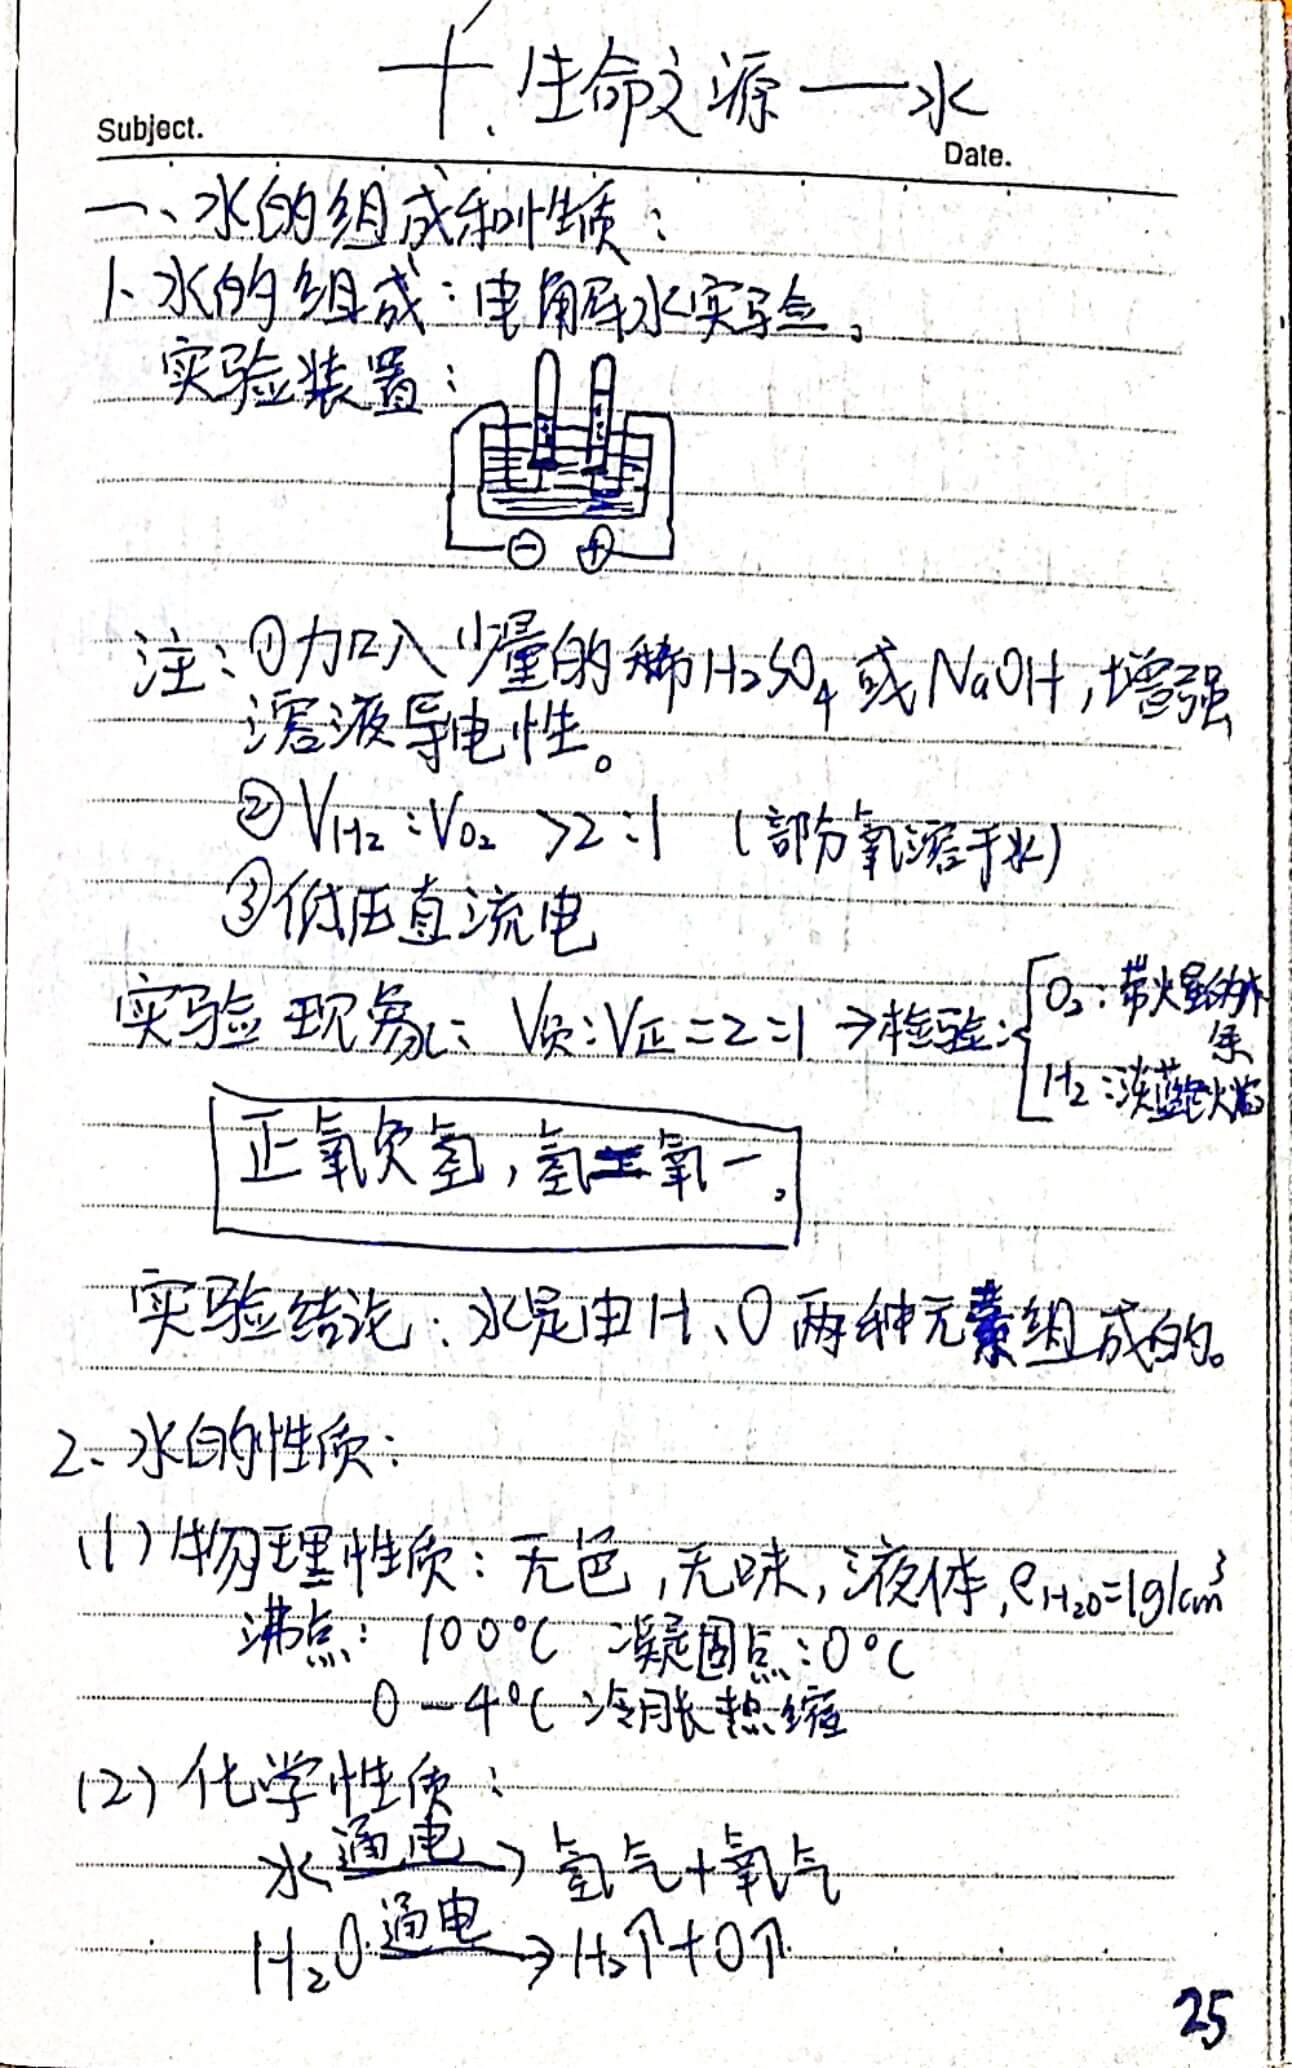 十、生命之源——水
Subject.
Date.
一、水的组成和性质：
1、水的组成：电解水实验。
实验装置：
- +
注：①加入少量的稀H₂SO₄或NaOH，增强
溶液导电性。
②V_H₂：V_O₂ >2：1 （部分氧溶于水）
③低压直流电
实验现象：V负：V正=2=1→检验：
O₂：带火星的木
条
H₂：淡蓝色火焰
正氧负氢，氢二氧一。
实验结论：水是由H、O两种元素组成的。
2、水的性质：
（1）物理性质：无色，无味，液体，ρH₂O=1g/cm³
沸点：100℃ 凝固点：0℃
0—4℃冷胀热缩
（2）化学性质：
水 通电→ 氢气+氧气
H₂O 通电→ H₂↑+O↑
25